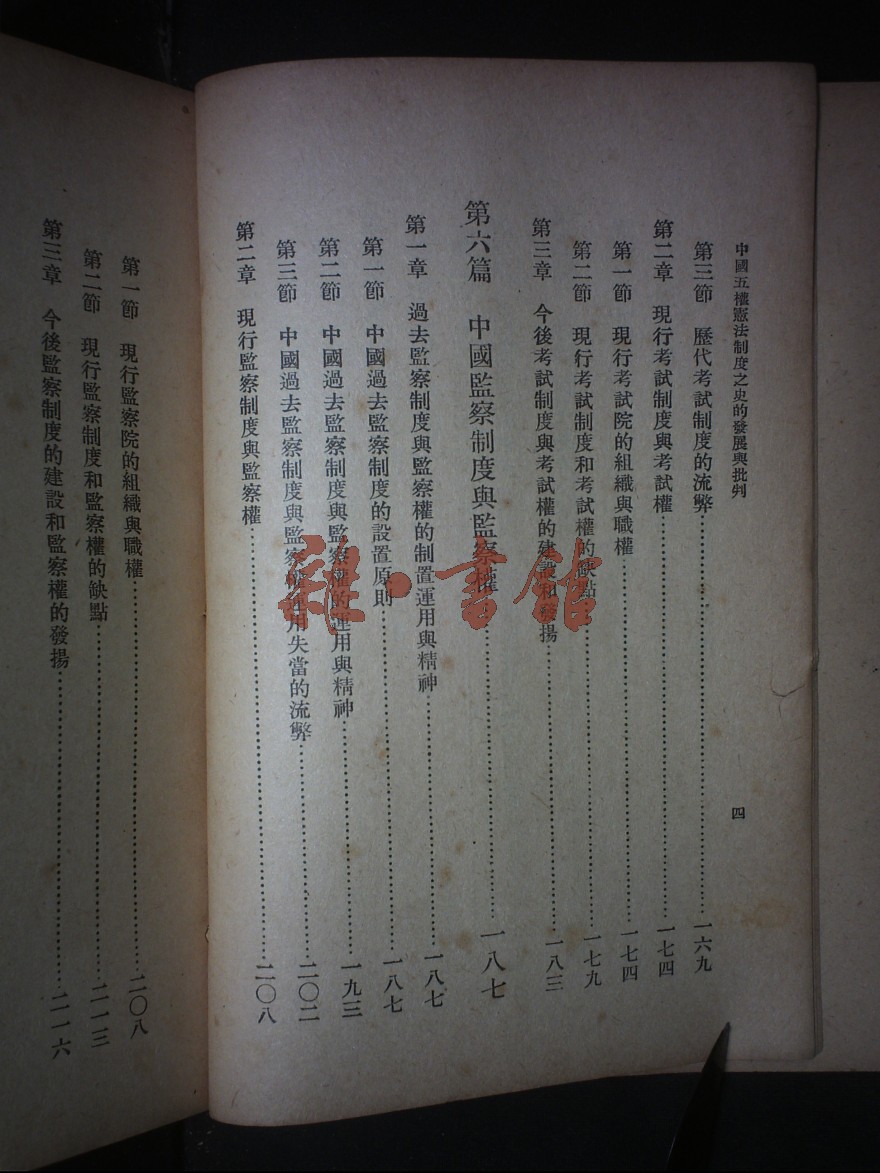 中國五權憲法制度之史的發展與批判
四
第三節 歷代考試制度的流弊……一六九
第二章 現行考試制度與考試權……一七四
第一節 現行考試院的組織與職權……一七四
第二節 現行考試制度和考試權的缺點……一七九
第三章 今後考試制度與考試權的建設和發揚……一八三
第六篇 中國監察制度與監察權……一八七
第一章 過去監察制度與監察權的制置運用與精神……一八七
第一節 中國過去監察制度的設置原則……一八七
第二節 中國過去監察制度與監察權的運用與精神……一九三
第三節 中國過去監察制度與監察權運用失當的流弊……二〇二
第二章 現行監察制度與監察權……二〇八
第一節 現行監察院的組織與職權……二〇八
第二節 現行監察制度和監察權的缺點……二一三
第三章 今後監察制度的建設和監察權的發揚……二一六
雜·書館